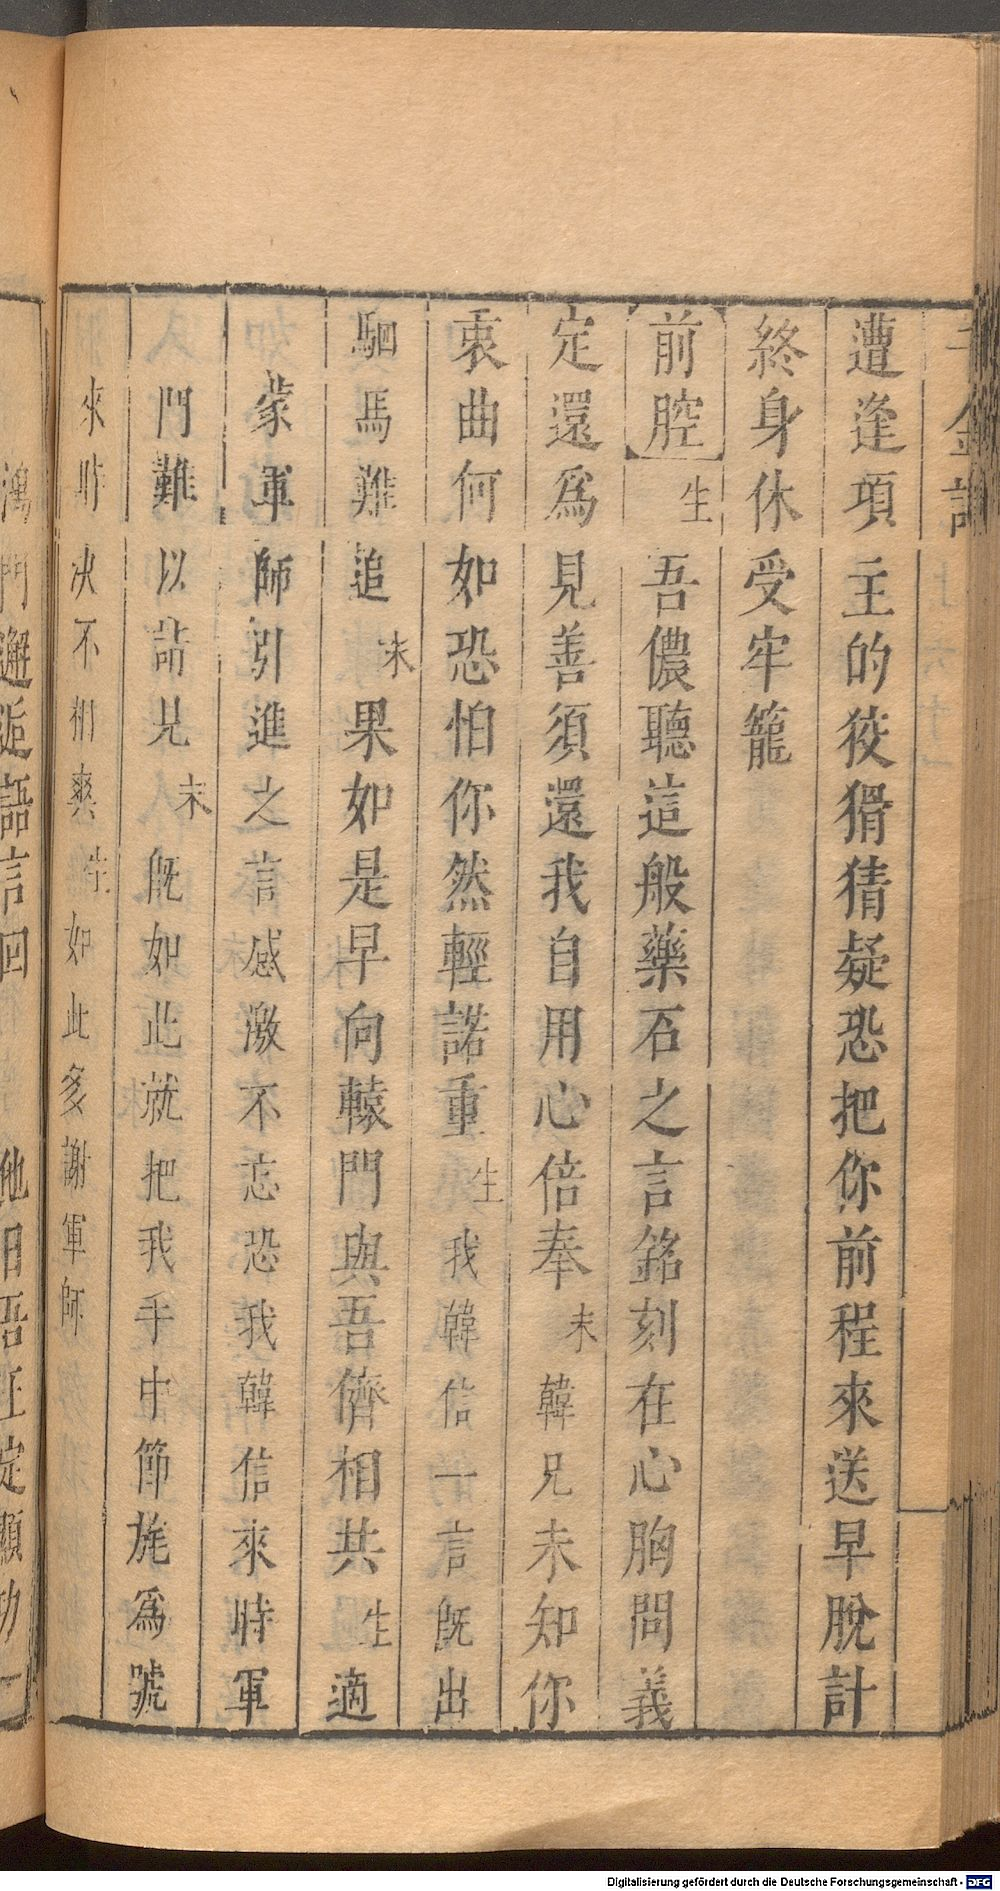 千金記
上 六十一
遭逢項主的狡猾猜疑恐把你前程來送早脫計
終身休受牢籠
前腔 生 吾儂聽這般藥石之言銘刻在心胸問義
定還爲見善須還我自用心倍奉 末 韓兄未知你
衷曲何如恐怕你然輕諾重 生 我韓信一言旣出
駟馬難追 末 果如是早向轅門與吾儕相共 生 適
蒙軍師引進之言感激不忘恐我韓信來時軍
門難以請見 末 旣如此就把我手中節旄爲號
來時決不相爽 生 如此多謝軍師
鴻門邂逅語言同 他日
Digitalisierung gefördert durch die Deutsche Forschungsgemeinschaft - DFG